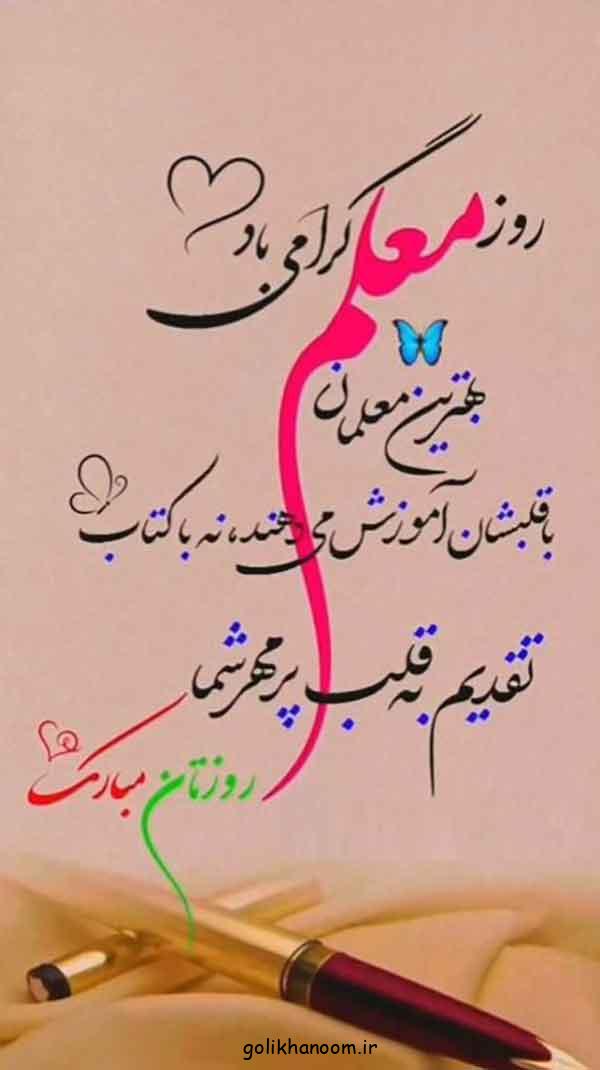 روز معلم گرامی باد
بهترین معلمان
با قلبشان آموزش می دهند، نه با کتاب
تقدیم به قلب پر مهر شما
روزتان مبارک
golikhanoom.ir